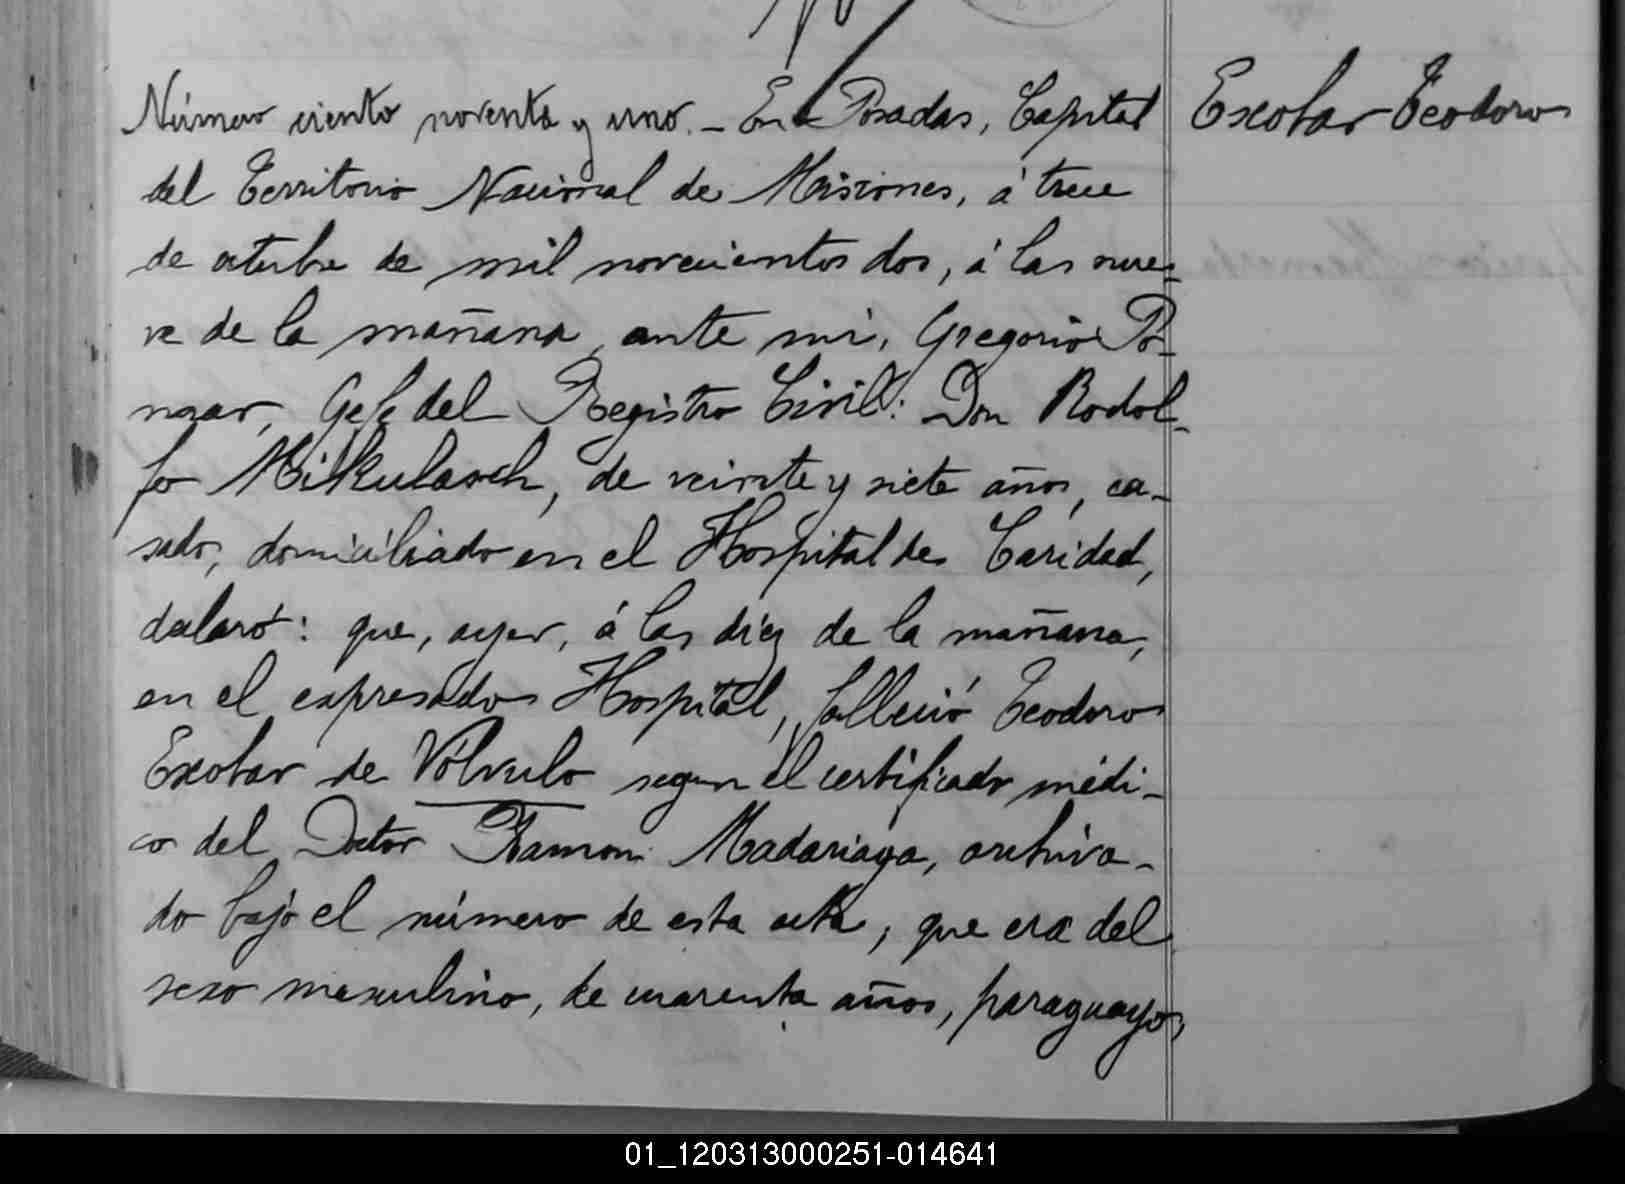 Número ciento noventa y uno. — En Posadas, Capital
Escobar Teodoro
del Territorio Nacional de Misiones, á trece
de octubre de mil novecientos dos, á las nue-
ve de la mañana, ante mi, Gregorio Po-
mar, Gefe del Registro Civil: Don Rodol-
fo Mikulasch, de veinte y siete años, ca-
sado, domiciliado en el Hospital de Caridad,
declaró: que, ayer, á las diez de la mañana,
en el expresado Hospital, falleció Teodoro
Escobar de Vólvulo segun el certificado médi-
co del Doctor Ramon Madariaga, archiva-
do bajo el número de esta acta, que era del
sexo masculino, de cuarenta años, paraguayo,
01_120313000251-014641